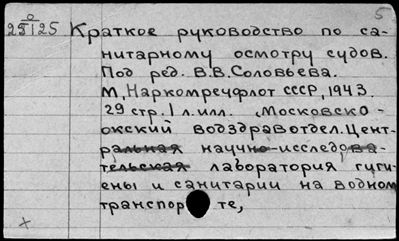 5
25125 Краткое руководство по са-
нитарному осмотру судов.
Под ред. В.В.Соловьева.
М, Наркомречфлот СССР, 1943.
29 стр. 1 л.илл. Московско-
окский водздравотдел. Цент-
ральная научно-исследова-
тельская лаборатория гиги-
ены и санитарии на водном
транспорте,